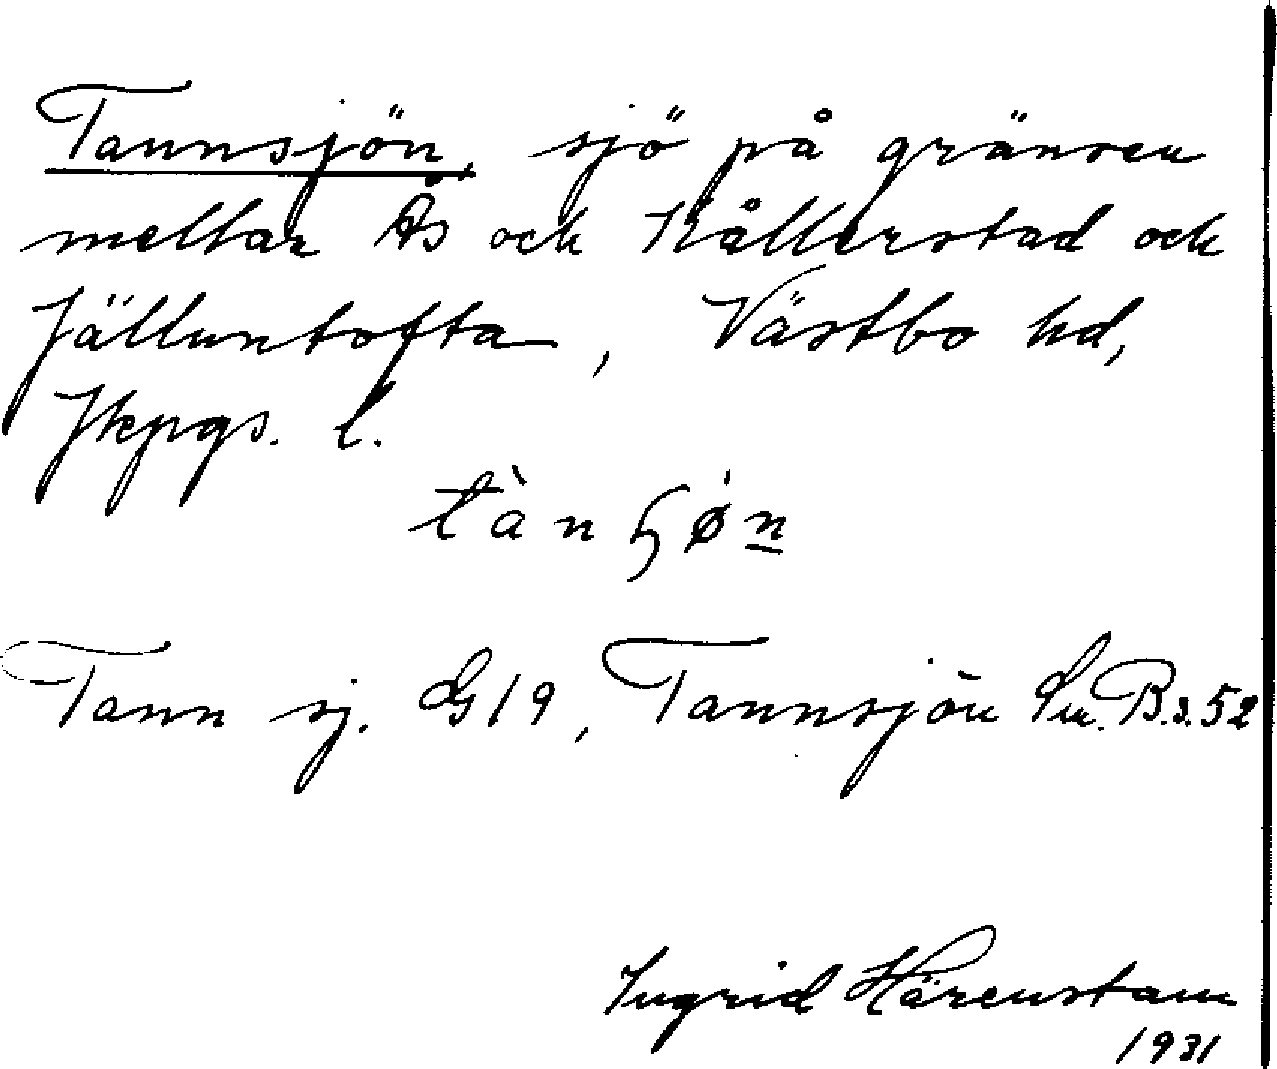 Tannsjön, sjö på gränsen
mellan Ås och Kållerstad och
Jälluntofta, Västbo hd,
Jkpgs. l.
tànɧø̀n̲
Tann sj. G19, Tannsjön Su.B.s.52
Ingrid Härenstam
1931